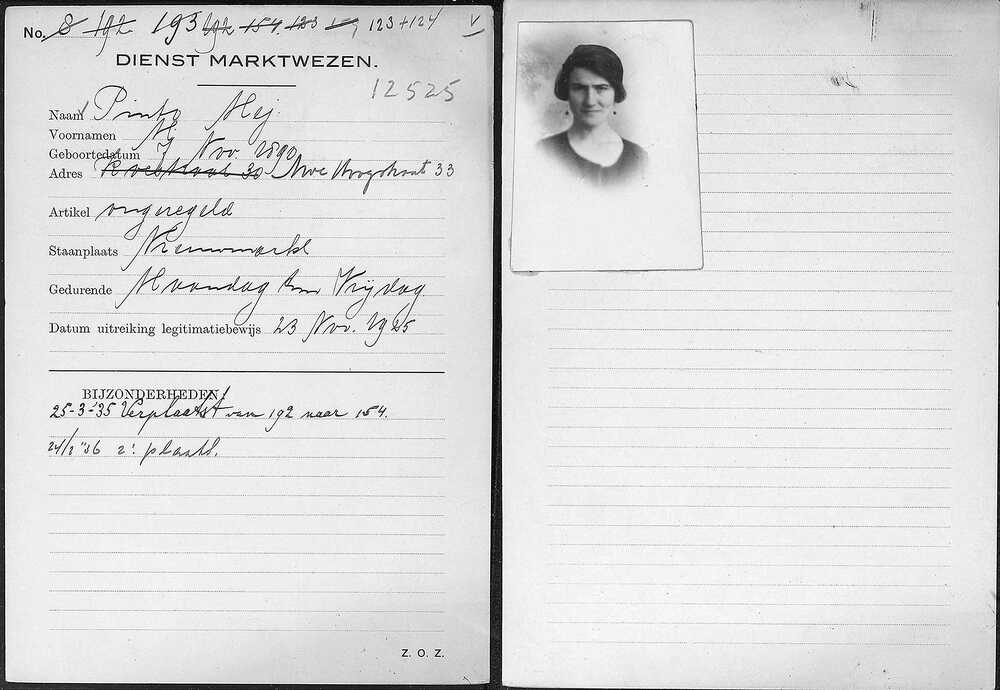 No. 8 192 193 192 154 123 123 + 124 V
DIENST MARKTWEZEN.
12525
Naam Pinto Mej.
Voornamen M
Geboortedatum 7 Nov. 1890
Adres 30 Nwe Hoogstraat 33
Artikel ongeregeld
Staanplaats Nieuwmarkt
Gedurende Maandag t/m Vrijdag
Datum uitreiking legitimatiebewijs 23 Nov. 1925
BIJZONDERHEDEN!
25-3-'35 Verplaatst van 192 naar 154.
24/8 '36 2e plaats.
Z. O. Z.